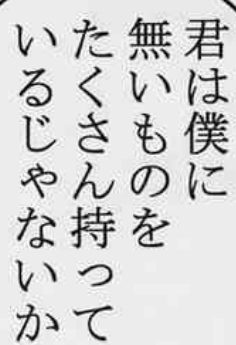 君は僕に
無いものを
たくさん持って
いるじゃないか